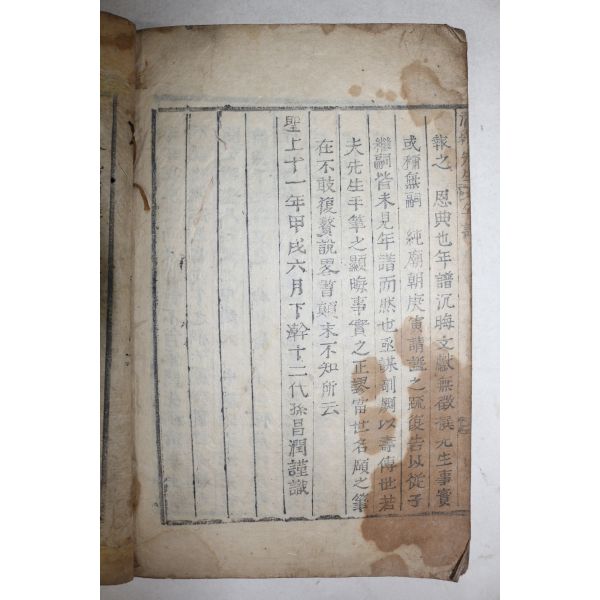 先生
報之 恩典也年譜沉晦文獻無徵撰先生事實
或稱無嗣 純廟朝庚寅請諡之疏復告以從子
繼嗣皆未見年譜而然也亟謀剞劂以壽傳世若
夫先生手筆之顯晦事實之正謬當世名碩之筆
在不敢復贅說畧書顛末不知所云
聖上十一年甲戌六月下澣十二代孫昌潤謹識